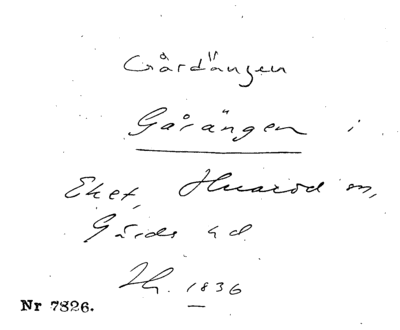 Gårdängen
Gårängen i
Eket, Huaröd sn,
Gärds hd
Th. 1836
Nr 7826.